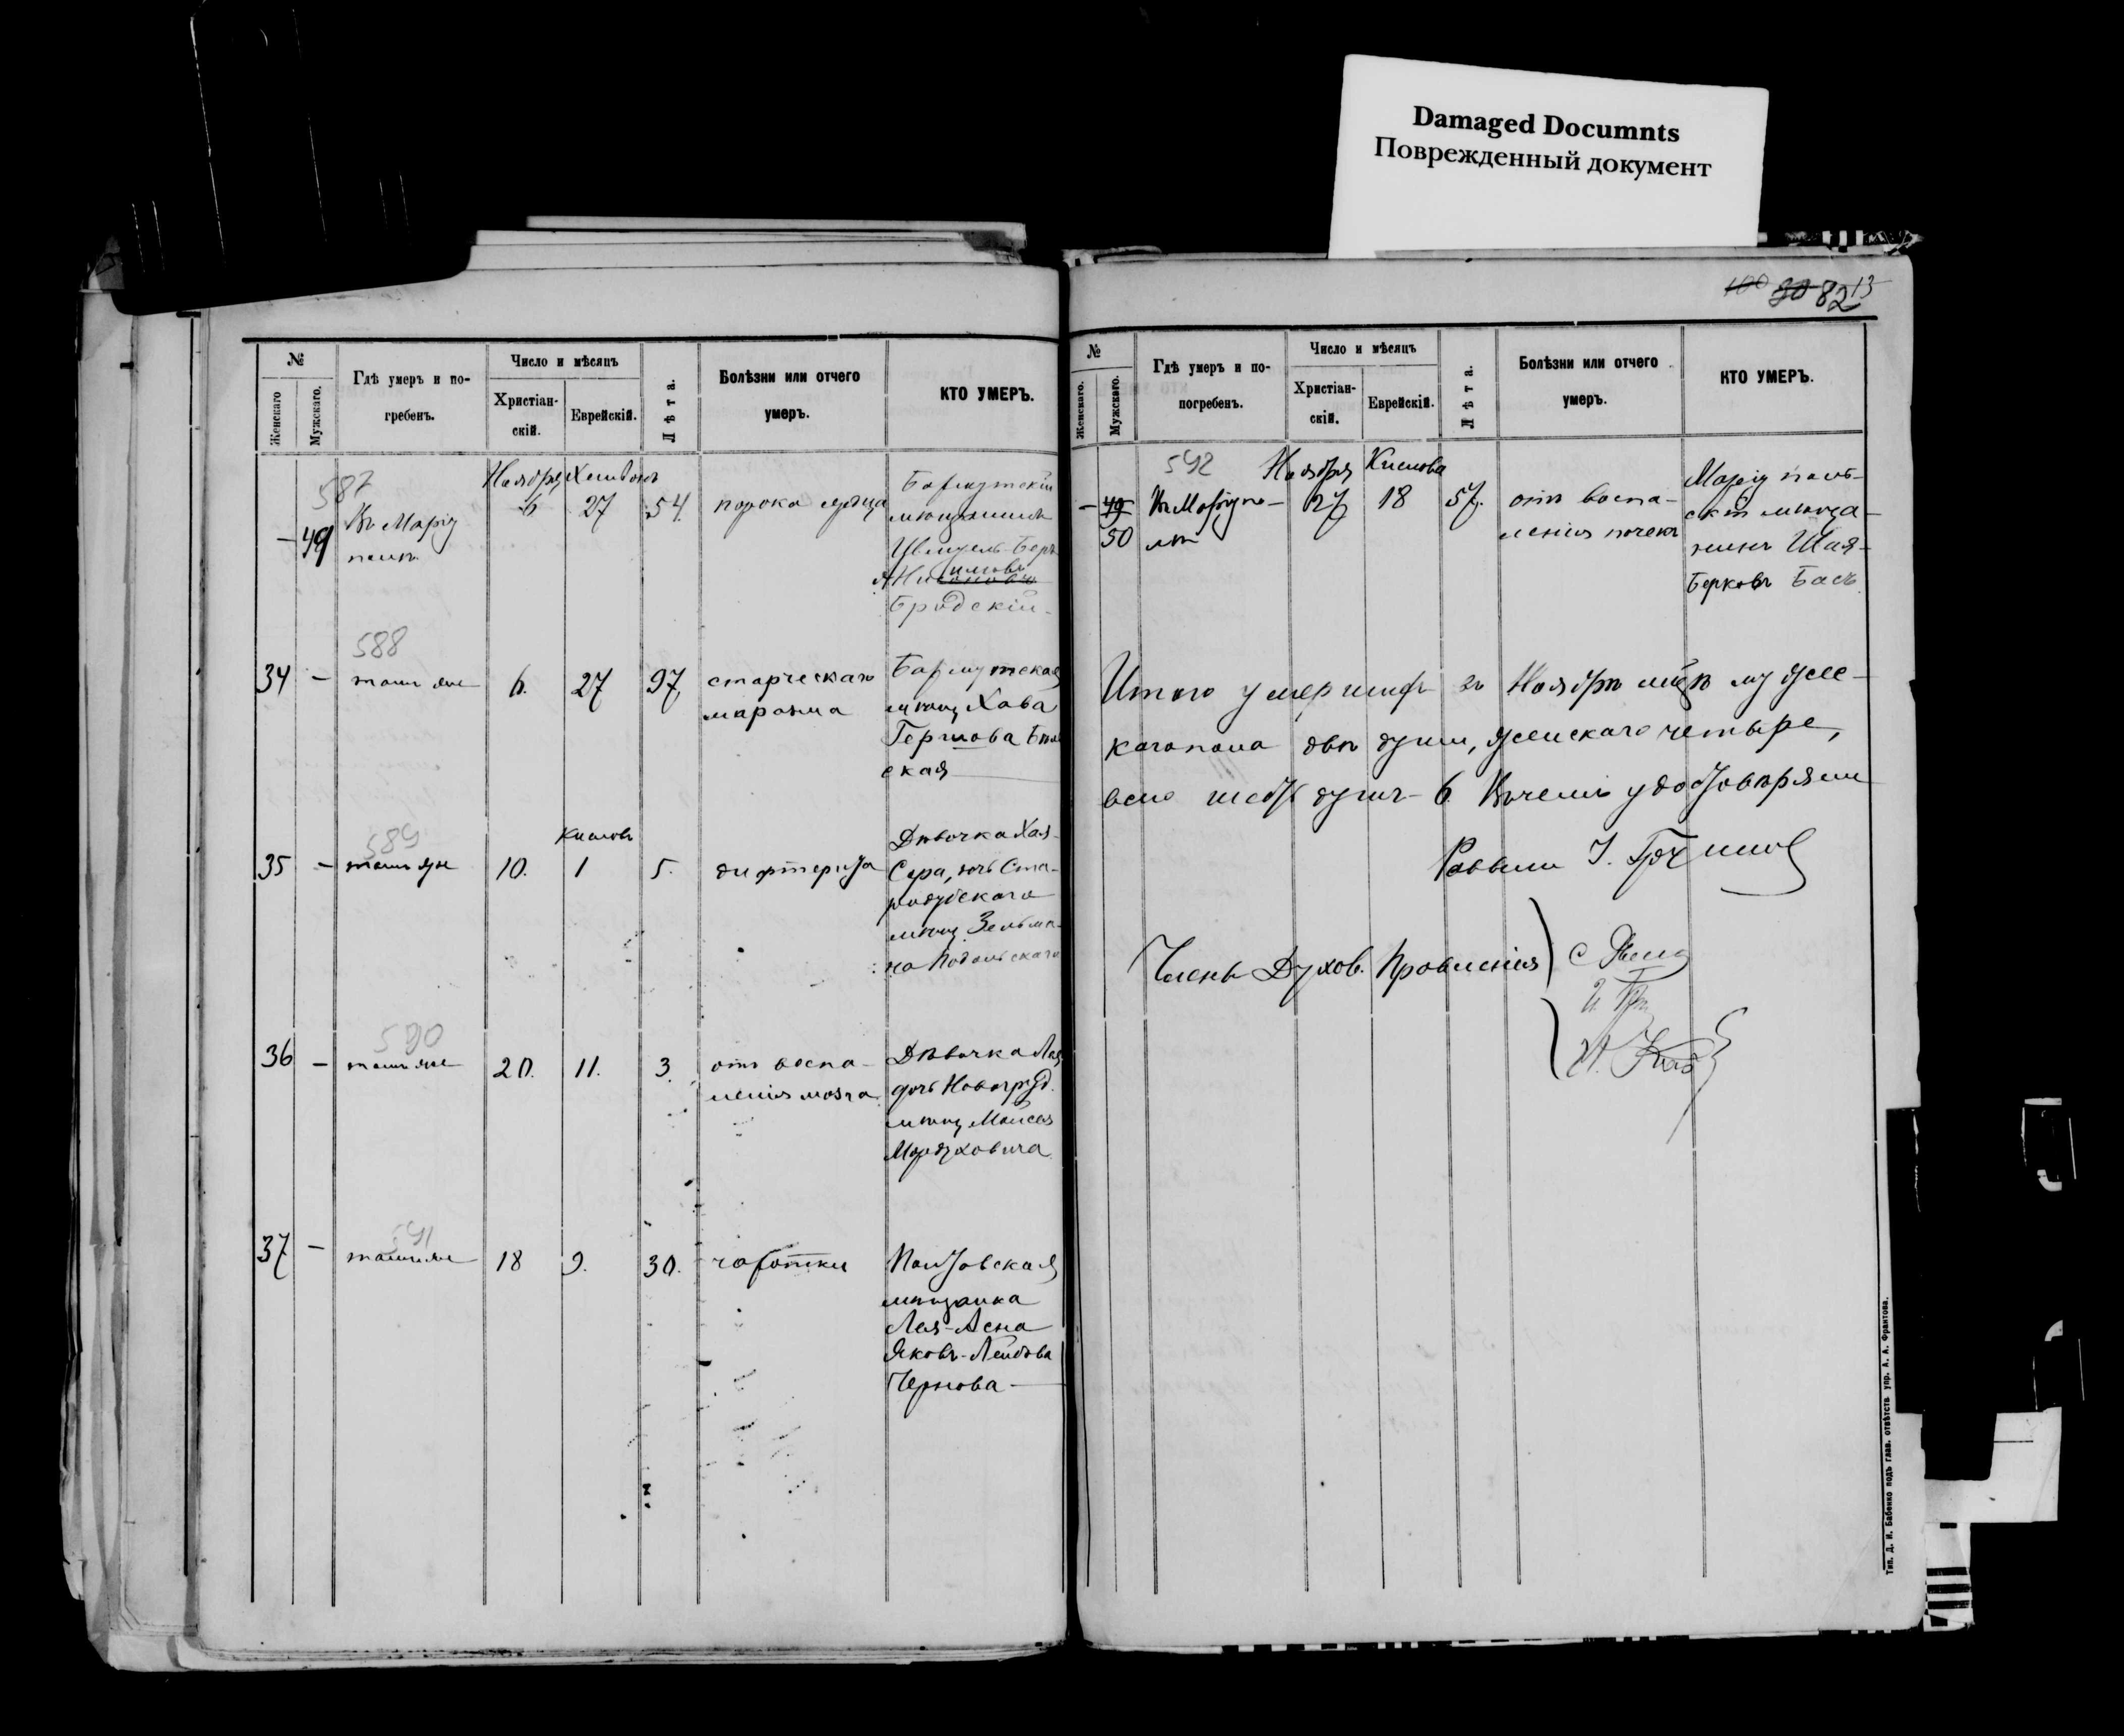 Damaged Documnts
Поврежденный документ
100 80 82 13
№
Женскаго
Мужскаго.
Гдѣ умеръ и по-
гребенъ.
Число и мѣсяцъ
Христіан-
скій.
Еврейскій.
Лѣта.
Болѣзни или отчего
умеръ.
КТО УМЕРЪ.
587
Ноября
– 49
Въ Маріу
полѣ
6
27
54.
порока сердца
Бахмутскій
мѣщанинъ
Бродскій
588
34 –
тамъ же
6.
27
97
старческаго
маразма
Бахмутская
мѣщ. Хава
Гершова
ская
589
35 –
тамъ же
10.
Кислевъ
1
5.
дифтерита
Дѣвочка Хая-
Сера, дочь Ста-
родубскаго
мѣщ. Зельма-
на Подольскаго
590
36 –
тамъ же
20.
11.
3.
отъ воспа-
ленія мозга
Дѣвочка Лея
дочь Новогруд.
мѣщ. Моисея
Мордуховича
591
37 –
тамъ же
18
9.
30.
чахотки
Полтавская
мѣщанка
Лея-Асна
Яковъ-Лейбова
Чернова
№
Женскаго.
Мужскаго.
Гдѣ умеръ и по-
погребенъ.
Число и мѣсяцъ
Христіан-
скій.
Еврейскій.
Лѣта.
Болѣзни или отчего
умеръ.
КТО УМЕРЪ.
592
Ноября
Кислева
– 49
50
Въ Маріупо-
лѣ
27
18
57.
отъ воспа-
ленія почекъ
Маріуполь-
скій мѣща-
нинъ Шая-
Берковъ Басъ
Итого умершихъ въ Ноябрѣ м-цѣ мужес-
каго пола двѣ души, женскаго четыре,
всего шесть душъ – 6. Въ чемъ удостовѣряемъ
Раввинъ
Члены Духов. Правленія
Тип. Д. И. Бабенко подъ глав. отвѣтств. упр. А. А. Франтова.